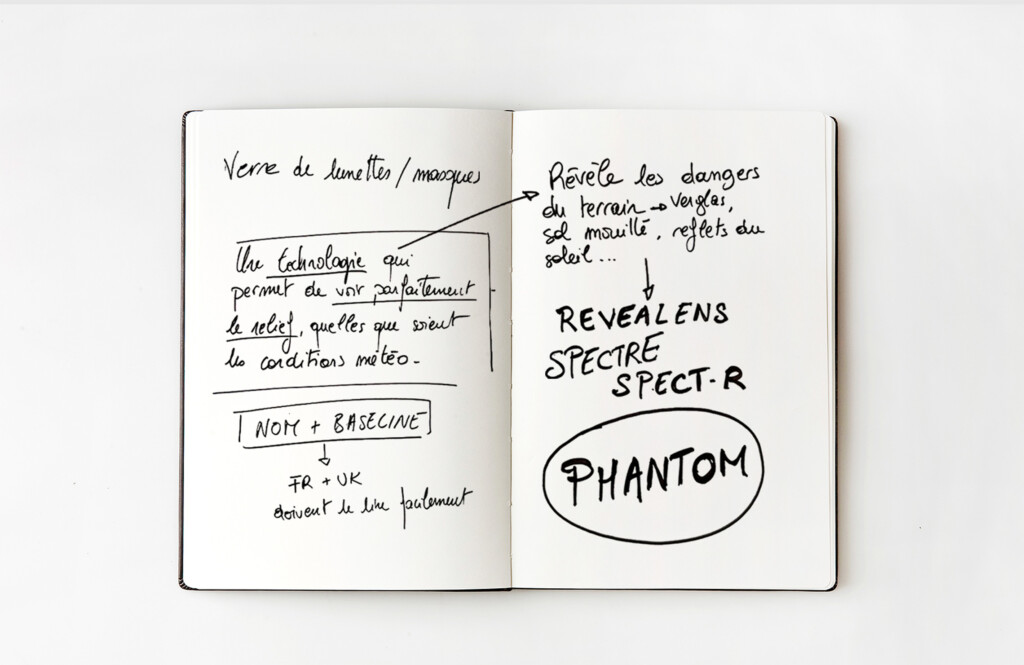 Verre de lunettes / masques
Une technologie qui
permet de voir parfaitement
le relief, quelles que soient
les conditions météo.
NOM + BASELINE
↓
FR + UK
doivent le lire facilement
Révèle les dangers
du terrain → verglas,
sol mouillé, reflets du
soleil...
↓
REVEALENS
SPECTRE
SPECT-R
PHANTOM